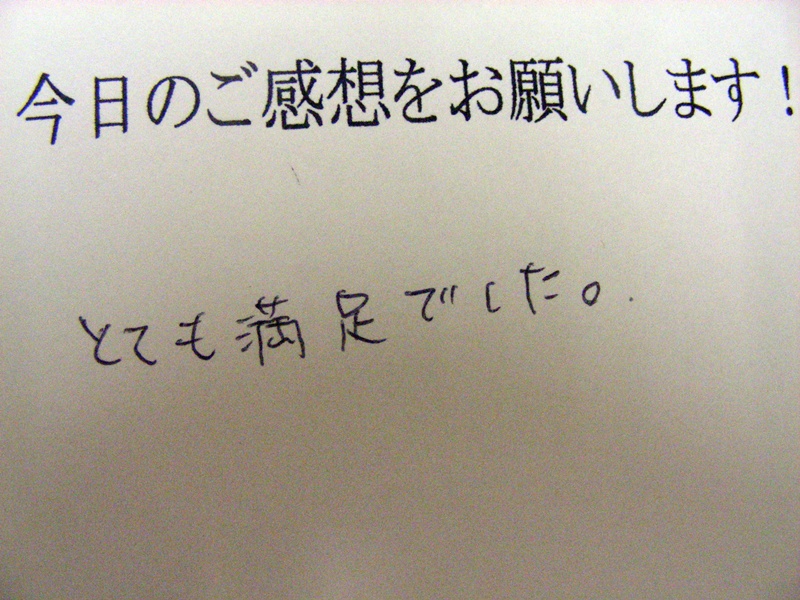 今日のご感想をお願いします!
とても満足でした。